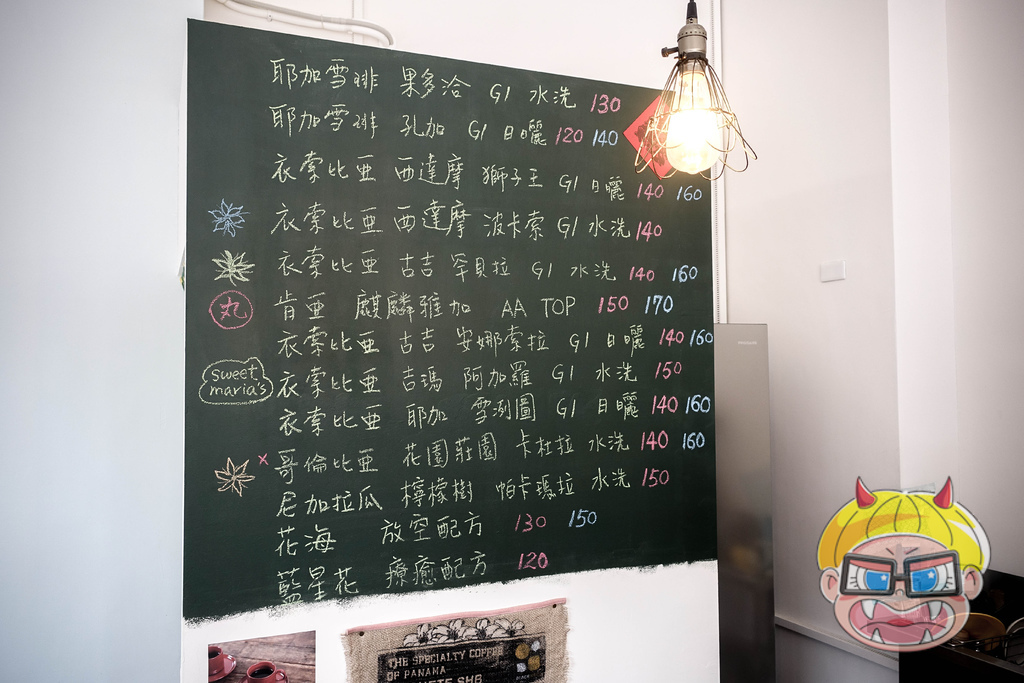 耶加雪啡 果多洽 G1 水洗 130
耶加雪啡 孔加 G1 日曬 120 140
衣索比亞 西達摩 獅子王 G1 日曬 140 160
衣索比亞 西達摩 波卡索 G1 水洗 140
衣索比亞 古吉 罕貝拉 G1 水洗 140 160
丸 肯亞 麒麟雅加 AA TOP 150 170
衣索比亞 古吉 安娜索拉 G1 日曬 140 160
sweet maria's
衣索比亞 吉瑪 阿加羅 G1 水洗 150
衣索比亞 耶加 雪洌圖 G1 日曬 140 160
x 哥倫比亞 花園莊園 卡杜拉 水洗 140 160
尼加拉瓜 檸檬樹 帕卡瑪拉 水洗 150
花海 放空配方 130 150
藍星花 療癒配方 120
THE SPECIALTY COFFEE
OF PANAMA
SHB